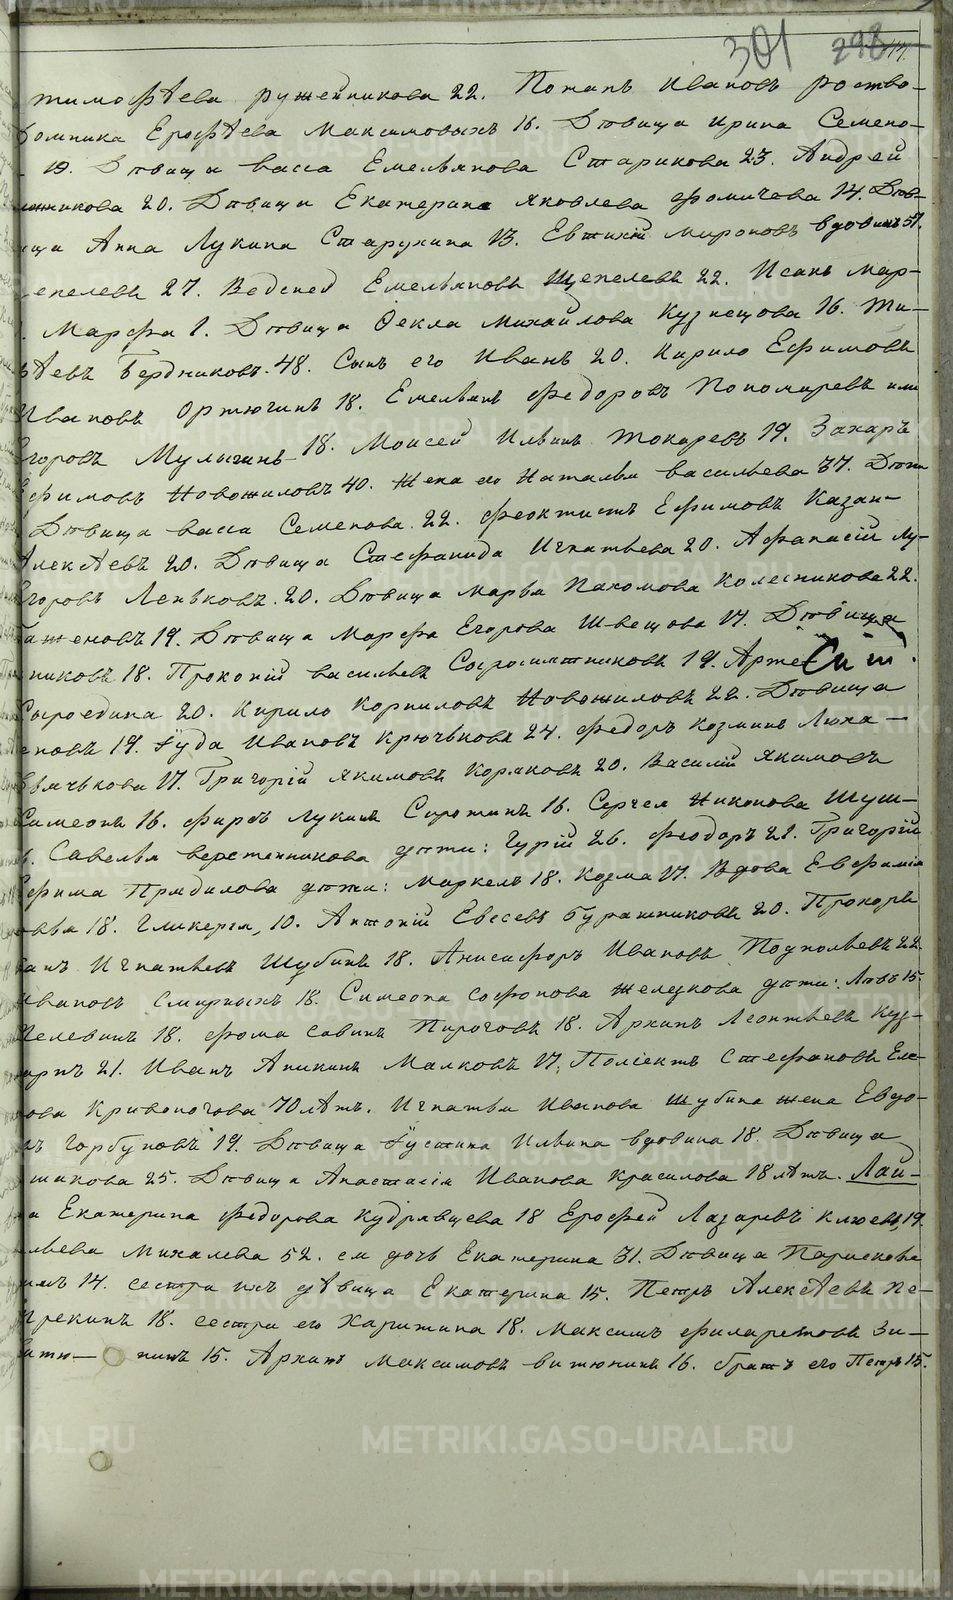 301 298
тимофѣева ружейникова 22. Потапъ Ивановъ роство-
Домника Ерофѣева Максимовыхъ 16. Дѣвица ирина Семено-
19. Дѣвица васса Емельянова Старикова 23. Андрей
никова 20. Дѣвица Екатерина яковлева фомичева 14. Дѣв-
ица Анна Лукина Старухина 13. Евтихій мироновъ вдовинъ 57.
епелевъ 27. Емельяновъ Щепелевъ 22. Исакъ мар-
Марфа 1. Дѣвица Ѳекла михайлова Кузнецова 16. ти-
ѣевъ Бердниковъ. 48. Сынъ его Иванъ 20. Кирило Ефимовъ
Ивановъ Ортюгинъ 18. Емельянъ федоровъ Пономаревъ или
Егоровъ Мулыгинъ 18. Моисей Ильинъ токаревъ 19. Захаръ
Ефимовъ Новожиловъ 40. Жена его Наталья васильева 37. Дѣти
Дѣвица васса Семенова. 22. феоктистъ Ефимовъ Казан-
Алексѣевъ 20. Дѣвица Стефанида Игнатьева 20. Афанасій лу-
Егоровъ Леньковъ. 20. Дѣвица марья Пахомова Колесникова 22.
баженовъ 19. Дѣвица Марфа Егорова Швецова 17. Дѣвица
никовъ 18. Прокопій васильевъ Сыромятниковъ 19. Арте
Сыроедина 20. Кирило Корниловъ Новожиловъ 22. Дѣвица
еновъ 19. Іуда Ивановъ Крючьковъ 24. федоръ козминъ Люха-
вячькова 17. Григорій якимовъ Коряковъ 20. Василій якимовъ
Симеонъ 16. фирсъ лукинъ Сиротинъ 16. Сергея Никонова Шуш-
Савелья веретенникова дѣти: Гурій 26. феодоръ 21. Григорій
Ефима Прядилова дѣти: маркелъ 18. козма 17. Вдова Евфимія
18. Гликерія, 10. Антоній Евсеевъ бурашниковъ 20. Прокоръ
Игнатьевъ Шубинъ 18. Анисифоръ Ивановъ Подкольевъ 22
Ивановъ Смирныхъ 18. Симеона софонова железкова дѣти: Левъ 15.
Пелевинъ 18. фома савинъ Пироговъ 18. Архипъ Леонтьевъ Куз-
21. Иванъ Аникинъ Малковъ 17. Поліектъ Стефановъ Еле-
ова Кривоногова 70 лѣтъ. Игнатья Иванова шубина жена Евдо-
Горбуновъ 19. Дѣвица Іустина Ильина вдовина 18. Дѣвица
шакова 25. Дѣвица Анастасія Иванова красилова 18 лѣтъ. Лай-
Екатерина федорова кудрявцева 18 Ерофей Лазаревъ клюевъ, 19.
льева михалева 52. ея дочь Екатерина 31. Дѣвица Парискова
14. сестра ихъ дѣвица Екатерина 15. Петръ Алексѣевъ Пе-
Грекинъ 18. сестра его Харитина 18. Максимъ филаретовъ Зи-
нинъ 15. Архипъ максимовъ витюнинъ 16. братъ его Петръ 15.